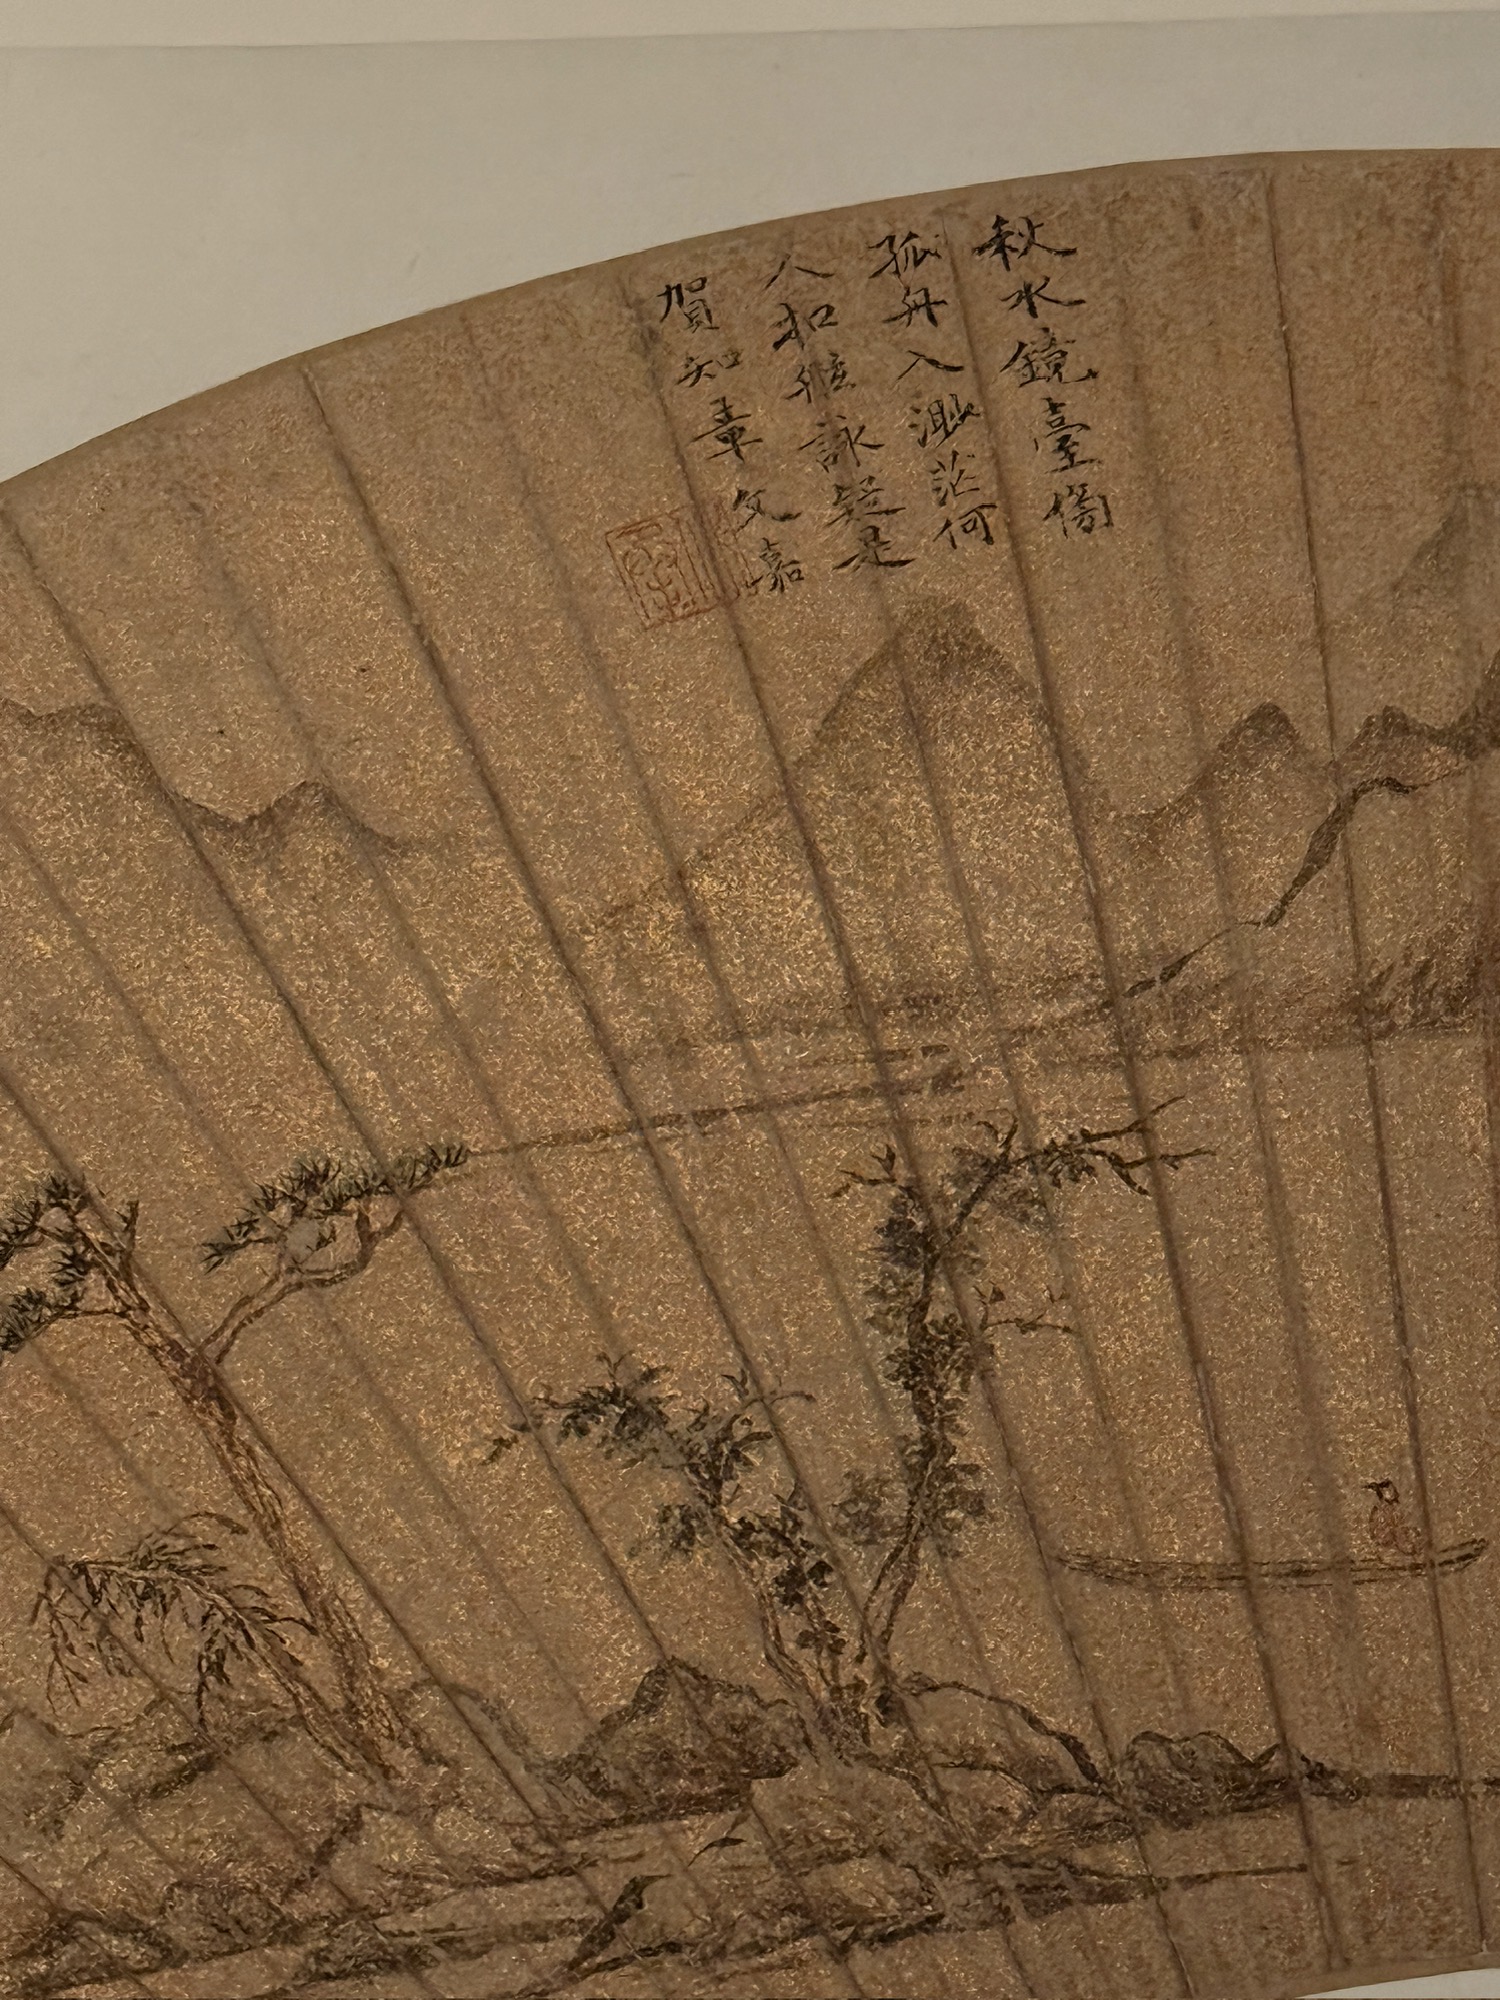 秋水鏡臺
孤舟入渺茫何
人扣舷詠疑是
賀知章文嘉